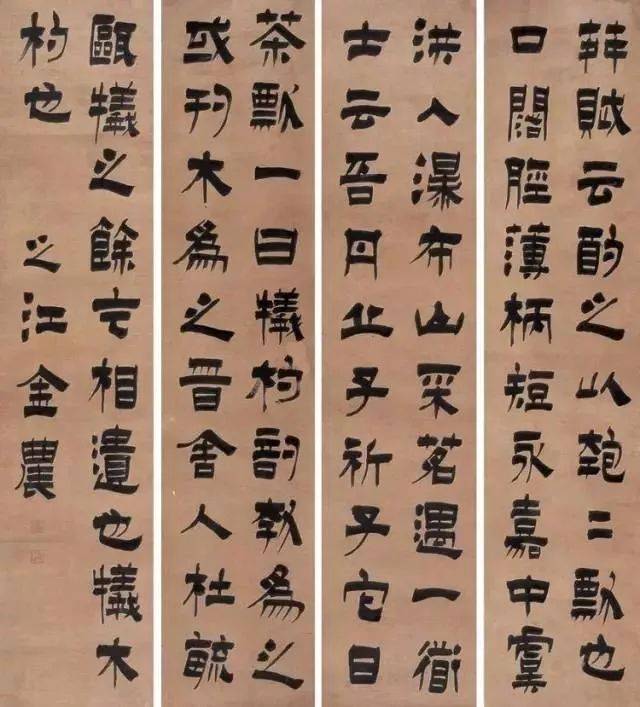 荈賦云酌之以匏〻瓢也
口闊脛薄柄短永嘉中虞
洪入瀑布山采茗遇一衜
士云吾丹丘子祈子它日
茶瓢一曰犧杓剖瓠為之
或刊木為之晉舍人杜毓
甌犧之餘乞相遺也犧木
杓也 之江金農